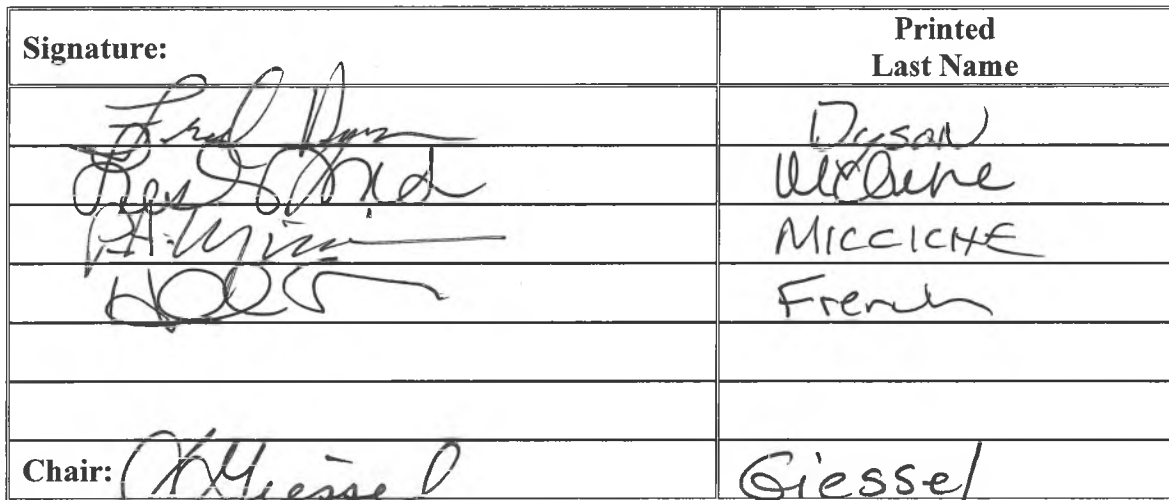 Signature: Printed
Last Name
Fred Dyson Dyson
McGuire
MICCICHE
French
Chair: Giessel Giessel